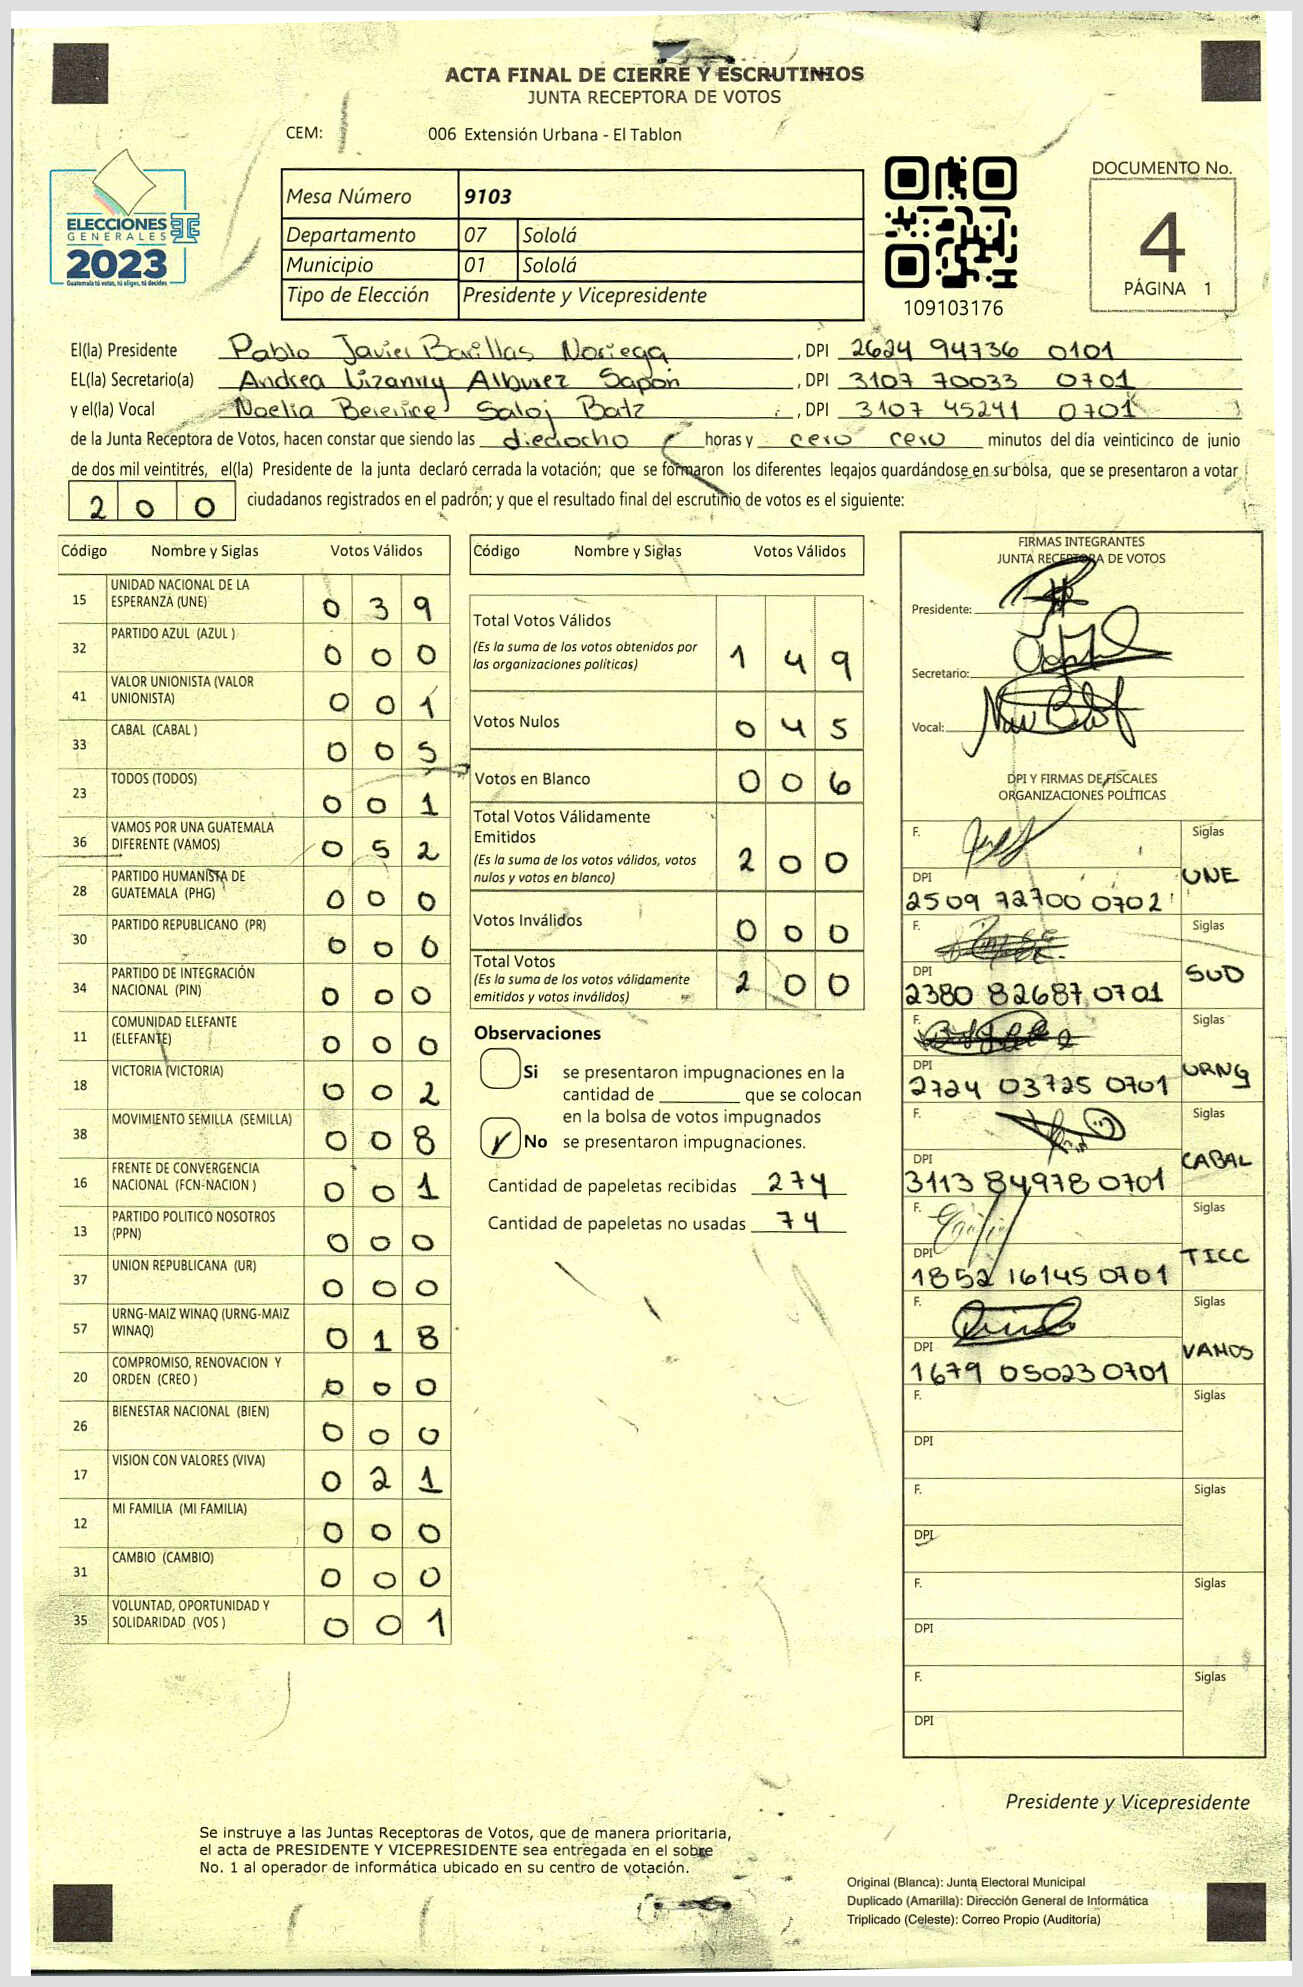 ACTA FINAL DE CIERRE Y ESCRUTINIOS
JUNTA RECEPTORA DE VOTOS
CEM: 006 Extensión Urbana - El Tablon
ELECCIONES
GENERALES
2023
Guatemala tú votas, tú eliges, tú decides
Mesa Número 9103
Departamento 07 Sololá
Municipio 01 Sololá
Tipo de Elección Presidente y Vicepresidente
109103176
DOCUMENTO No.
4
PÁGINA 1
El(la) Presidente Pablo Javier Barillas Noriega, DPI 2624 94736 0101
EL(la) Secretario(a) Andrea Lizanny Alburez Sapón, DPI 3107 70033 0701
y el(la) Vocal Noelia Berenice Saloj Batz, DPI 3107 45241 0701
de la Junta Receptora de Votos, hacen constar que siendo las dieciocho horas y cero cero minutos del día veinticinco de junio
de dos mil veintitrés, el(la) Presidente de la junta declaró cerrada la votación; que se formaron los diferentes legajos guardándose en su bolsa, que se presentaron a votar
200 ciudadanos registrados en el padrón; y que el resultado final del escrutinio de votos es el siguiente:
Código Nombre y Siglas Votos Válidos
15 UNIDAD NACIONAL DE LA ESPERANZA (UNE) 039
32 PARTIDO AZUL (AZUL ) 000
41 VALOR UNIONISTA (VALOR UNIONISTA) 001
33 CABAL (CABAL ) 005
23 TODOS (TODOS) 001
36 VAMOS POR UNA GUATEMALA DIFERENTE (VAMOS) 052
28 PARTIDO HUMANISTA DE GUATEMALA (PHG) 000
30 PARTIDO REPUBLICANO (PR) 000
34 PARTIDO DE INTEGRACIÓN NACIONAL (PIN) 000
11 COMUNIDAD ELEFANTE (ELEFANTE) 000
18 VICTORIA (VICTORIA) 002
38 MOVIMIENTO SEMILLA (SEMILLA) 008
16 FRENTE DE CONVERGENCIA NACIONAL (FCN-NACION ) 001
13 PARTIDO POLITICO NOSOTROS (PPN) 000
37 UNION REPUBLICANA (UR) 000
57 URNG-MAIZ WINAQ (URNG-MAIZ WINAQ) 018
20 COMPROMISO, RENOVACION Y ORDEN (CREO ) 000
26 BIENESTAR NACIONAL (BIEN) 000
17 VISION CON VALORES (VIVA) 021
12 MI FAMILIA (MI FAMILIA) 000
31 CAMBIO (CAMBIO) 000
35 VOLUNTAD, OPORTUNIDAD Y SOLIDARIDAD (VOS ) 001
Código Nombre y Siglas Votos Válidos
Total Votos Válidos 149
(Es la suma de los votos obtenidos por
las organizaciones políticas)
Votos Nulos 045
Votos en Blanco 006
Total Votos Válidamente
Emitidos 200
(Es la suma de los votos válidos, votos
nulos y votos en blanco)
Votos Inválidos 000
Total Votos 200
(Es la suma de los votos válidamente
emitidos y votos inválidos)
Observaciones
Si se presentaron impugnaciones en la
cantidad de ________ que se colocan
en la bolsa de votos impugnados
No se presentaron impugnaciones.
Cantidad de papeletas recibidas 274
Cantidad de papeletas no usadas 74
FIRMAS INTEGRANTES
JUNTA RECEPTORA DE VOTOS
Presidente:
Secretario:
Vocal:
DPI Y FIRMAS DE FISCALES
ORGANIZACIONES POLÍTICAS
F. Siglas
DPI UNE
2509 72700 0702
F. Siglas
DPI SUD
2380 82687 0701
F. Siglas
DPI URNG
2724 03725 0701
F. Siglas
DPI CABAL
3113 84978 0701
F. Siglas
DPI TICC
1852 16145 0701
F. Siglas
DPI VAMOS
1679 05023 0701
F. Siglas
DPI
F. Siglas
DPI
F. Siglas
DPI
F. Siglas
DPI
Presidente y Vicepresidente
Se instruye a las Juntas Receptoras de Votos, que de manera prioritaria,
el acta de PRESIDENTE Y VICEPRESIDENTE sea entregada en el sobre
No. 1 al operador de informática ubicado en su centro de votación.
Original (Blanca): Junta Electoral Municipal
Duplicado (Amarilla): Dirección General de Informática
Triplicado (Celeste): Correo Propio (Auditoría)